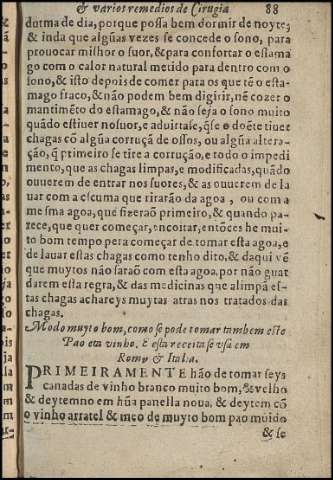 & varios remedios de Cirugia 88
dutma de dia, porque possa bem dormir de noyte;
& inda que algũas vezes se concede o sono, para
prouocar milhor o suor, & para confortar o estama
go com o calor natural metido para dentro com o
sono, & isto depois de comer para os que tẽ o esta-
mago fraco, & não podem bem digirir, nẽ cozer o
mantimẽto do estamago, & não seja o sono muito
quãdo estiuer no suor, e aduirtase, q̃ se o doẽte tiuer
chagas cõ algũa corruçã de ossos, ou algũa altera-
ção, q̃ primeiro se tire a corrução, e todo o impedi
mento, que as chagas limpas, e modificadas, quãdo
ouuerem de entrar nos suores, & as ouuerem de la
uar com a escuma que tirarão da agoa, ou com a
mesma agoa, que fizerão primeiro, & quando pa-
rece, que quer começar, encoitar, entõces he mui-
to bom tempo pera começar de tomar esta agoa, e
de lauar estas chagas como tenho dito, & daqui vẽ
que muytos não sarão com esta agoa, por não guar
darem esta regra, & das medicinas que alimpã es-
tas chagas achareys muytas atras nos tratados das
chagas.
Modo muyto bom, como se pode tomar tambem este
Pao em vinho. E esta receita se vsa em
Roma & Italia.
PRIMEIRAMENTE hão de tomar seys
canadas de vinho branco muito bom, & velho
& deytemno em hũa panella noua, & deytem cõ
o vinho arratel & meo de muyto bom pao muido
& se